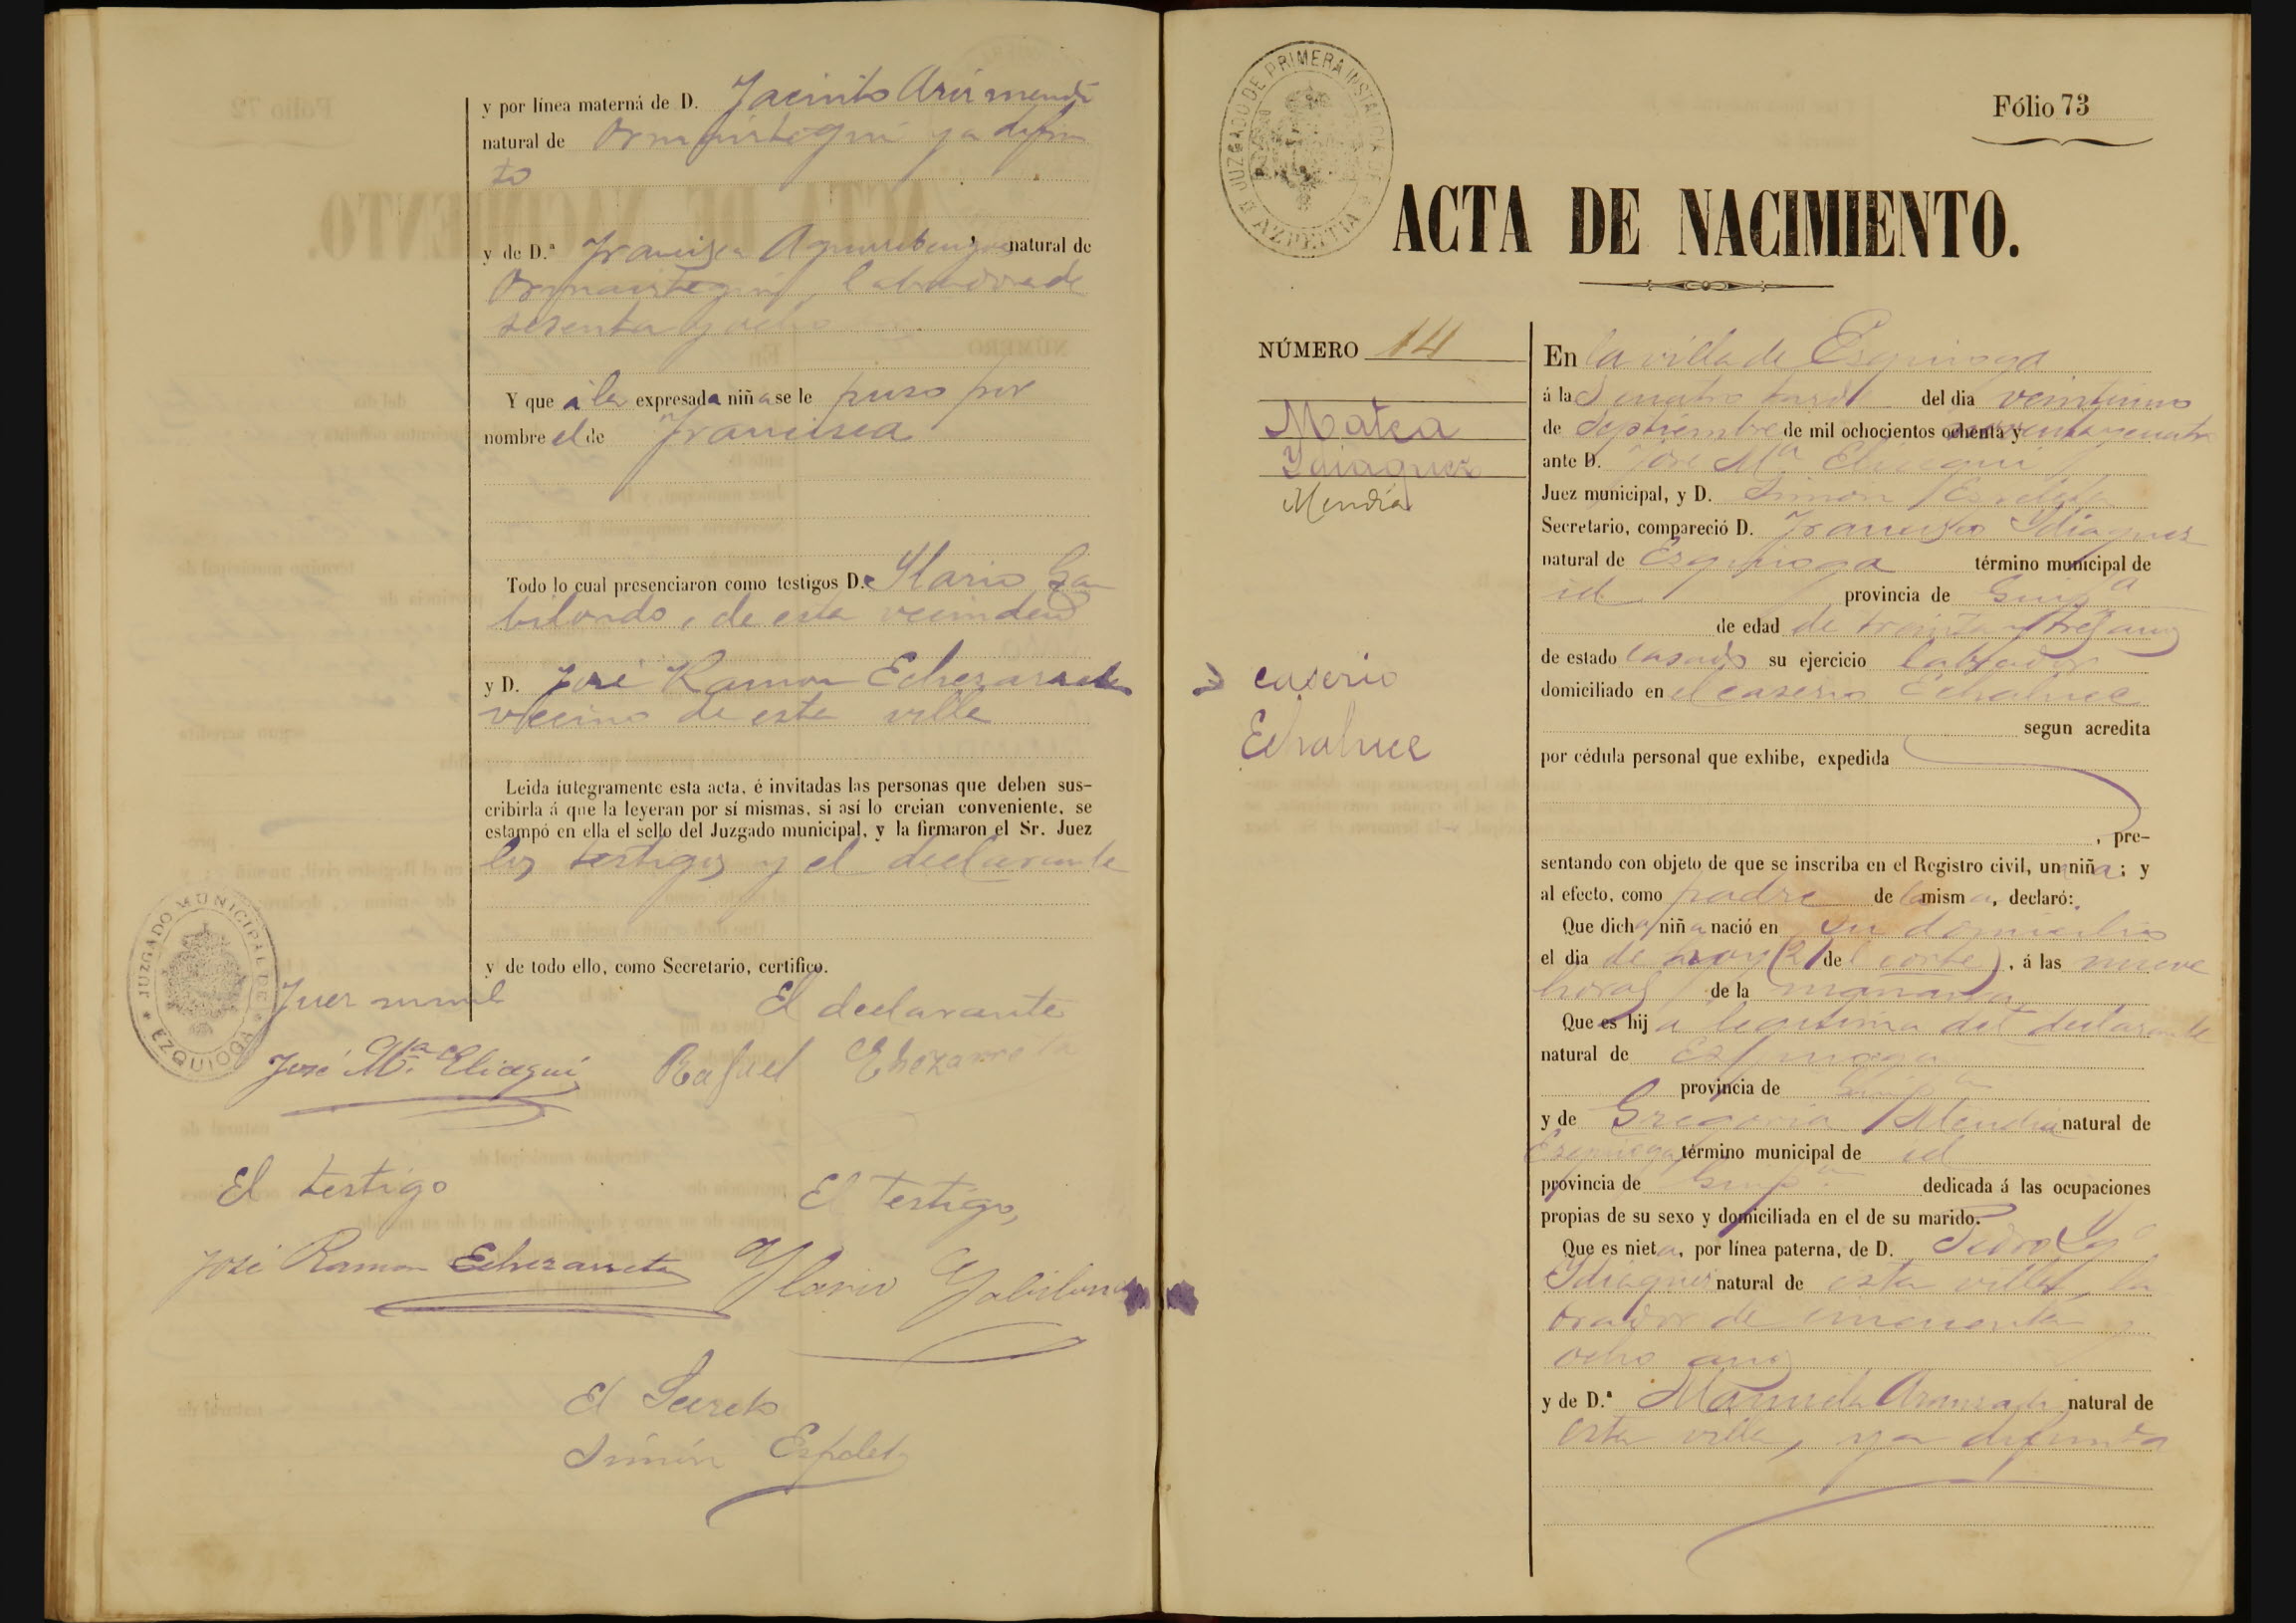 y por línea materna de D. Jacinto Arizmendi
natural de Ormaiztegui ya difun
to
y de D.ª Francisca natural de
Ormaiztegui, labradora de
sesenta y ocho
Y que á la expresada niña se le puso por
nombre el de Francisca
Todo lo cual presenciaron como testigos D. Ylario Ga
bilondo, de esta vecindad
y D. José Ramon Echezarreta
vecino de esta villa
Leida íntegramente esta acta, é invitadas las personas que deben sus-
cribirla á que la leyeran por sí mismas, si así lo creian conveniente, se
estampó en ella el sello del Juzgado municipal, y la firmaron el Sr. Juez
los testigos y el declarante
y de todo ello, como Secretario, certifico.
JUZGADO MUNICIPAL DE EZQUIOGA
Juez munl
El declarante
José Mª. Elicegui
Rafael Echezarreta
El testigo
El Testigo,
José Ramon Echezarreta
Ylario Gabilondo
El Secreto
Simón Espeleta
JUZGADO DE PRIMERA INSTANCIA DE AZPEITIA
Fólio 73
ACTA DE NACIMIENTO.
NÚMERO 14
Matea
Ydiaquez
Mendía
caserio
Echaluce
En la villa de Esquioga
á las cuatro tarde del dia veintiuno
de Septiembre de mil ochocientos ochenta y noventa y cuatro
ante D. José Mª Elicegui
Juez municipal, y D. Simón Espeleta
Secretario, compareció D. Francisco Ydiaquez
natural de Ezquioga término municipal de
id provincia de Guipª
de edad de treinta y tres años
de estado casado su ejercicio labrador
domiciliado en el caserio Echaluce
segun acredita
por cédula personal que exhibe, expedida
, pre-
sentando con objeto de que se inscriba en el Registro civil, una niña; y
al efecto, como padre de la misma, declaró:
Que dicha niña nació en su domicilio
el dia de hoy (21 del corte), á las nueve
horas de la mañana
Que es hija legitima del declarante
natural de Esquioga
provincia de Guipª
y de Gregoria Mendia natural de
Esquioga término municipal de id
provincia de Guipª. dedicada á las ocupaciones
propias de su sexo y domiciliada en el de su marido.
Que es nieta, por línea paterna, de D. Pedro Ygº
Ydiaquez natural de esta villa, la
brador de cincuenta y
ocho años
y de D.ª Manuela Aranzadi natural de
esta villa, ya difunta